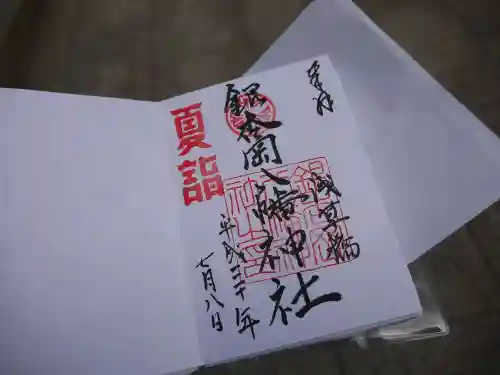 奉拝
浅草橋
銀杏岡八幡神社
平成三十年
七月八日
夏詣